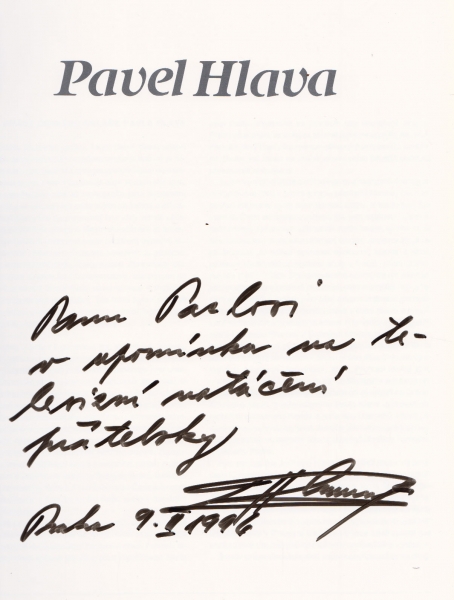 Pavel Hlava
Panu Pavlovi
v upomínku na te-
levizní natáčení
přátelsky
Praha 9. II 1996